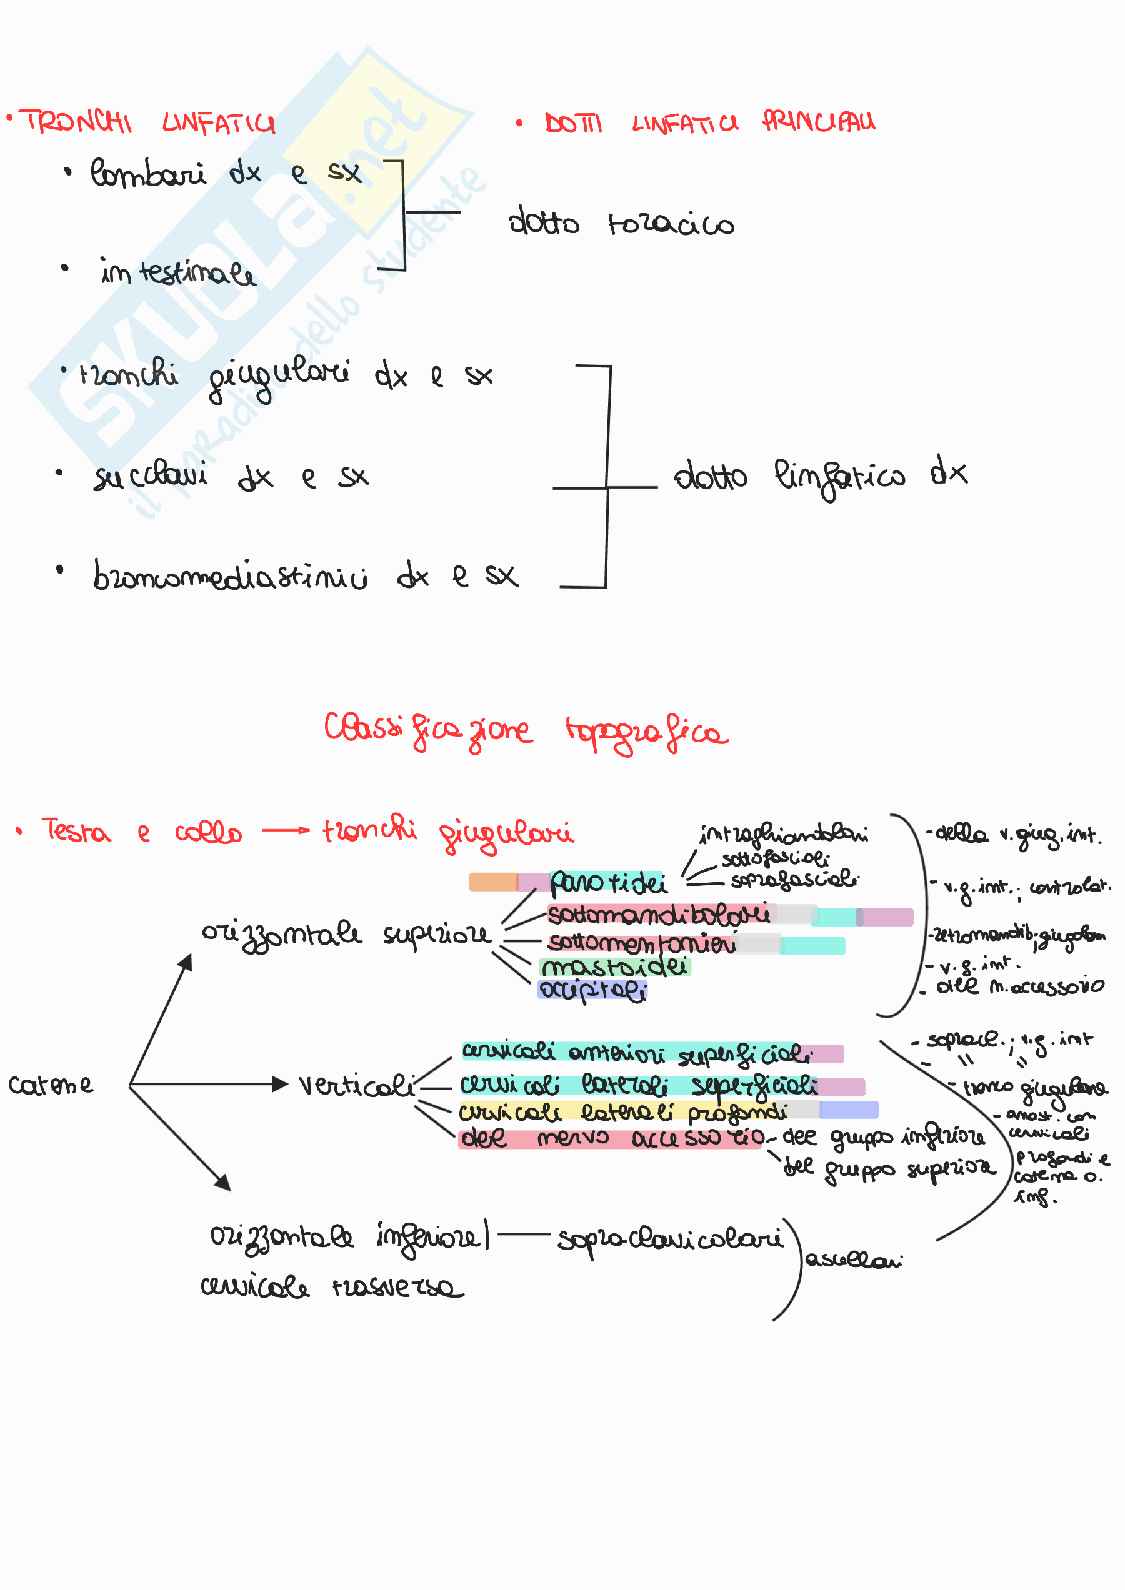 • TRONCHI LINFATICI
• DOTTI LINFATICI PRINCIPALI
• lombari dx e sx
dotto toracico
• intestinale
• tronchi giugulari dx e sx
• succlavi dx e sx
dotto linfatico dx
• broncomediastinici dx e sx
SKUOLA.net
il paradiso dello studente
Classificazione topografica
• Testa e collo → tronchi giugulari
intraghiandolari
sottofasciali
soprafasciali
parotidei
sottomandibolari
sottomentonieri
mastoidei
occipitali
orizzontale superiore
- della v. giug. int.
- v.g. int.; controlat.
- retromandib; giugolari
- v.g. int.
- del n. accessorio
catene
verticali
cervicali anteriori superficiali
cervicali laterali superficiali
cervicali laterali profondi
del nervo accessorio - del gruppo inferiore
del gruppo superiore
- sopracl.; v.g. int
- " "
- tronco giugulare
- anast. con
cervicali
profondi e
catena o.
inf.
orizzontale inferiore | — sopraclavicolari
cervicale trasversa
ascellari